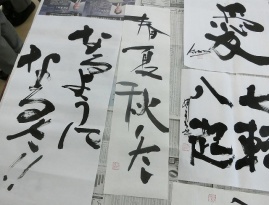 愛
七転
八起
春夏秋冬
なるように
なるさ!!